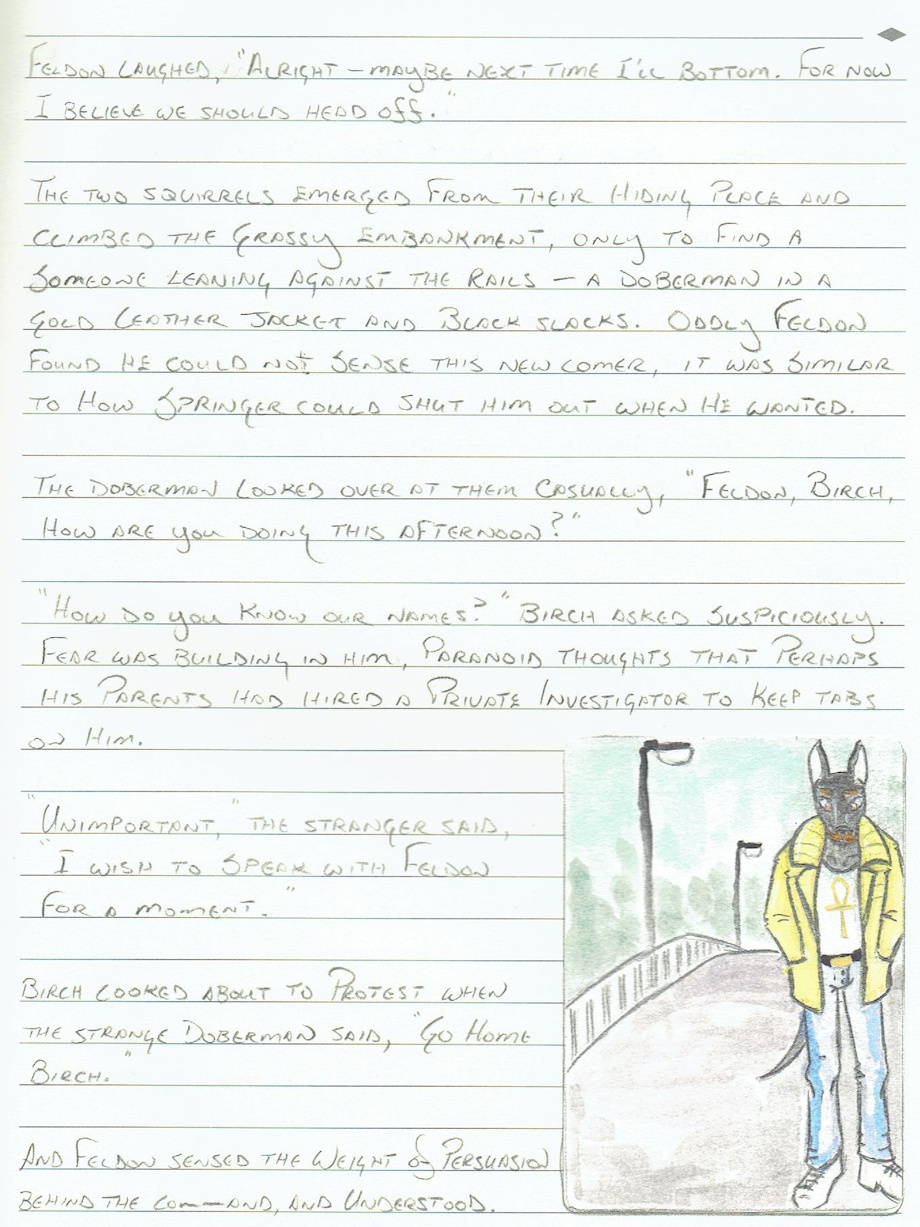 Feldon laughed, "Alright – maybe next time I'll bottom. For now
I believe we should head off."
The two squirrels emerged from their hiding place and
climbed the grassy embankment, only to find a
someone leaning against the rails – a doberman in a
gold leather jacket and black slacks. Oddly Feldon
found he could not sense this new comer, it was similar
to how Springer could shut him out when he wanted.
The doberman looked over at them casually, "Feldon, Birch,
how are you doing this afternoon?"
"How do you know our names?" Birch asked suspiciously.
Fear was building in him, paranoid thoughts that perhaps
his parents had hired a private investigator to keep tabs
on him.
"Unimportant," the stranger said,
"I wish to speak with Feldon
for a moment."
Birch looked about to protest when
the strange doberman said, "Go home
Birch."
And Feldon sensed the weight of persuasion
behind the command, and understood.